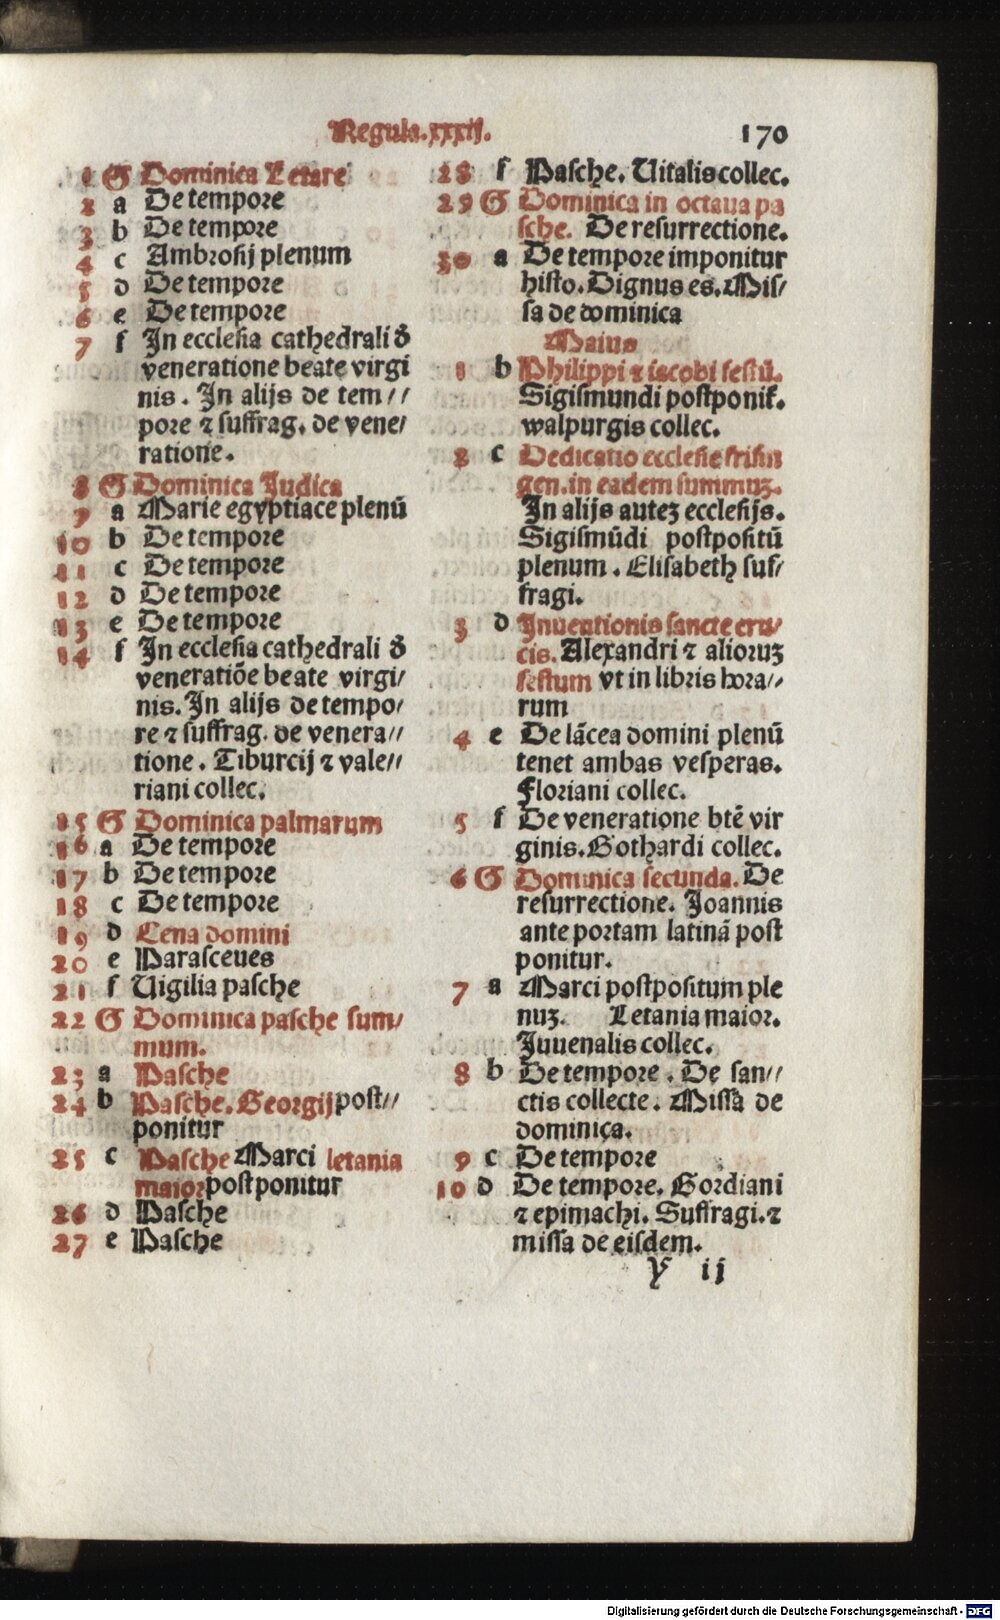 Regula.xxxij.
170
1 G Dominica Letare
2 a De tempore
3 b De tempore
4 c Ambrosij plenum
5 d De tempore
6 e De tempore
7 f In ecclesia cathedrali đ
veneratione beate virgi
nis. In alijs de tem//
pore ⁊ suffrag. de vene/
ratione.
8 G Dominica Judica
9 a Marie egyptiace plenū
10 b De tempore
11 c De tempore
12 d De tempore
13 e De tempore
14 f In ecclesia cathedrali đ
veneratiōe beate virgi/
nis. In alijs de tempo/
re ⁊ suffrag. de venera//
tione. Tiburcij ⁊ vale//
riani collec.
15 G Dominica palmarum
16 a De tempore
17 b De tempore
18 c De tempore
19 d Cena domini
20 e Parasceues
21 f Uigilia pasche
22 G Dominica pasche sum/
mum.
23 a Pasche
24 b Pasche. Georgij post//
ponitur
25 c Pasche Marci letania
maior postponitur
26 d Pasche
27 e Pasche
28 f Pasche. Uitalis collec.
29 G Dominica in octaua pa
sche. De resurrectione.
30 a De tempore imponitur
histo. Dignus es. Mis/
sa de dominica
Maius
1 b Philippi ⁊ iacobi festū.
Sigismundi postponiť.
walpurgis collec.
2 c Dedicatio ecclesie frisin
gen. in eadem summuꝫ.
In alijs auteꝫ ecclesijs.
Sigismūdi postpositū
plenum. Elisabeth suf/
fragi.
3 d Inuentionis sancte cru/
cis. Alexandri ⁊ alioruꝫ
festum vt in libris hora//
rum
4 e De lācea domini plenū
tenet ambas vesperas.
Floriani collec.
5 f De veneratione btē vir
ginis. Gothardi collec.
6 G Dominica secunda. De
resurrectione. Joannis
ante portam latinā post
ponitur.
7 a Marci postpositum ple
nuꝫ. Letania maior.
Juuenalis collec.
8 b De tempore. De san//
ctis collecte. Missa de
dominica.
9 c De tempore
10 d De tempore. Gordiani
⁊ epimachi. Suffragi. ⁊
missa de eisdem.
y ij
Digitalisierung gefördert durch die Deutsche Forschungsgemeinschaft - DFG